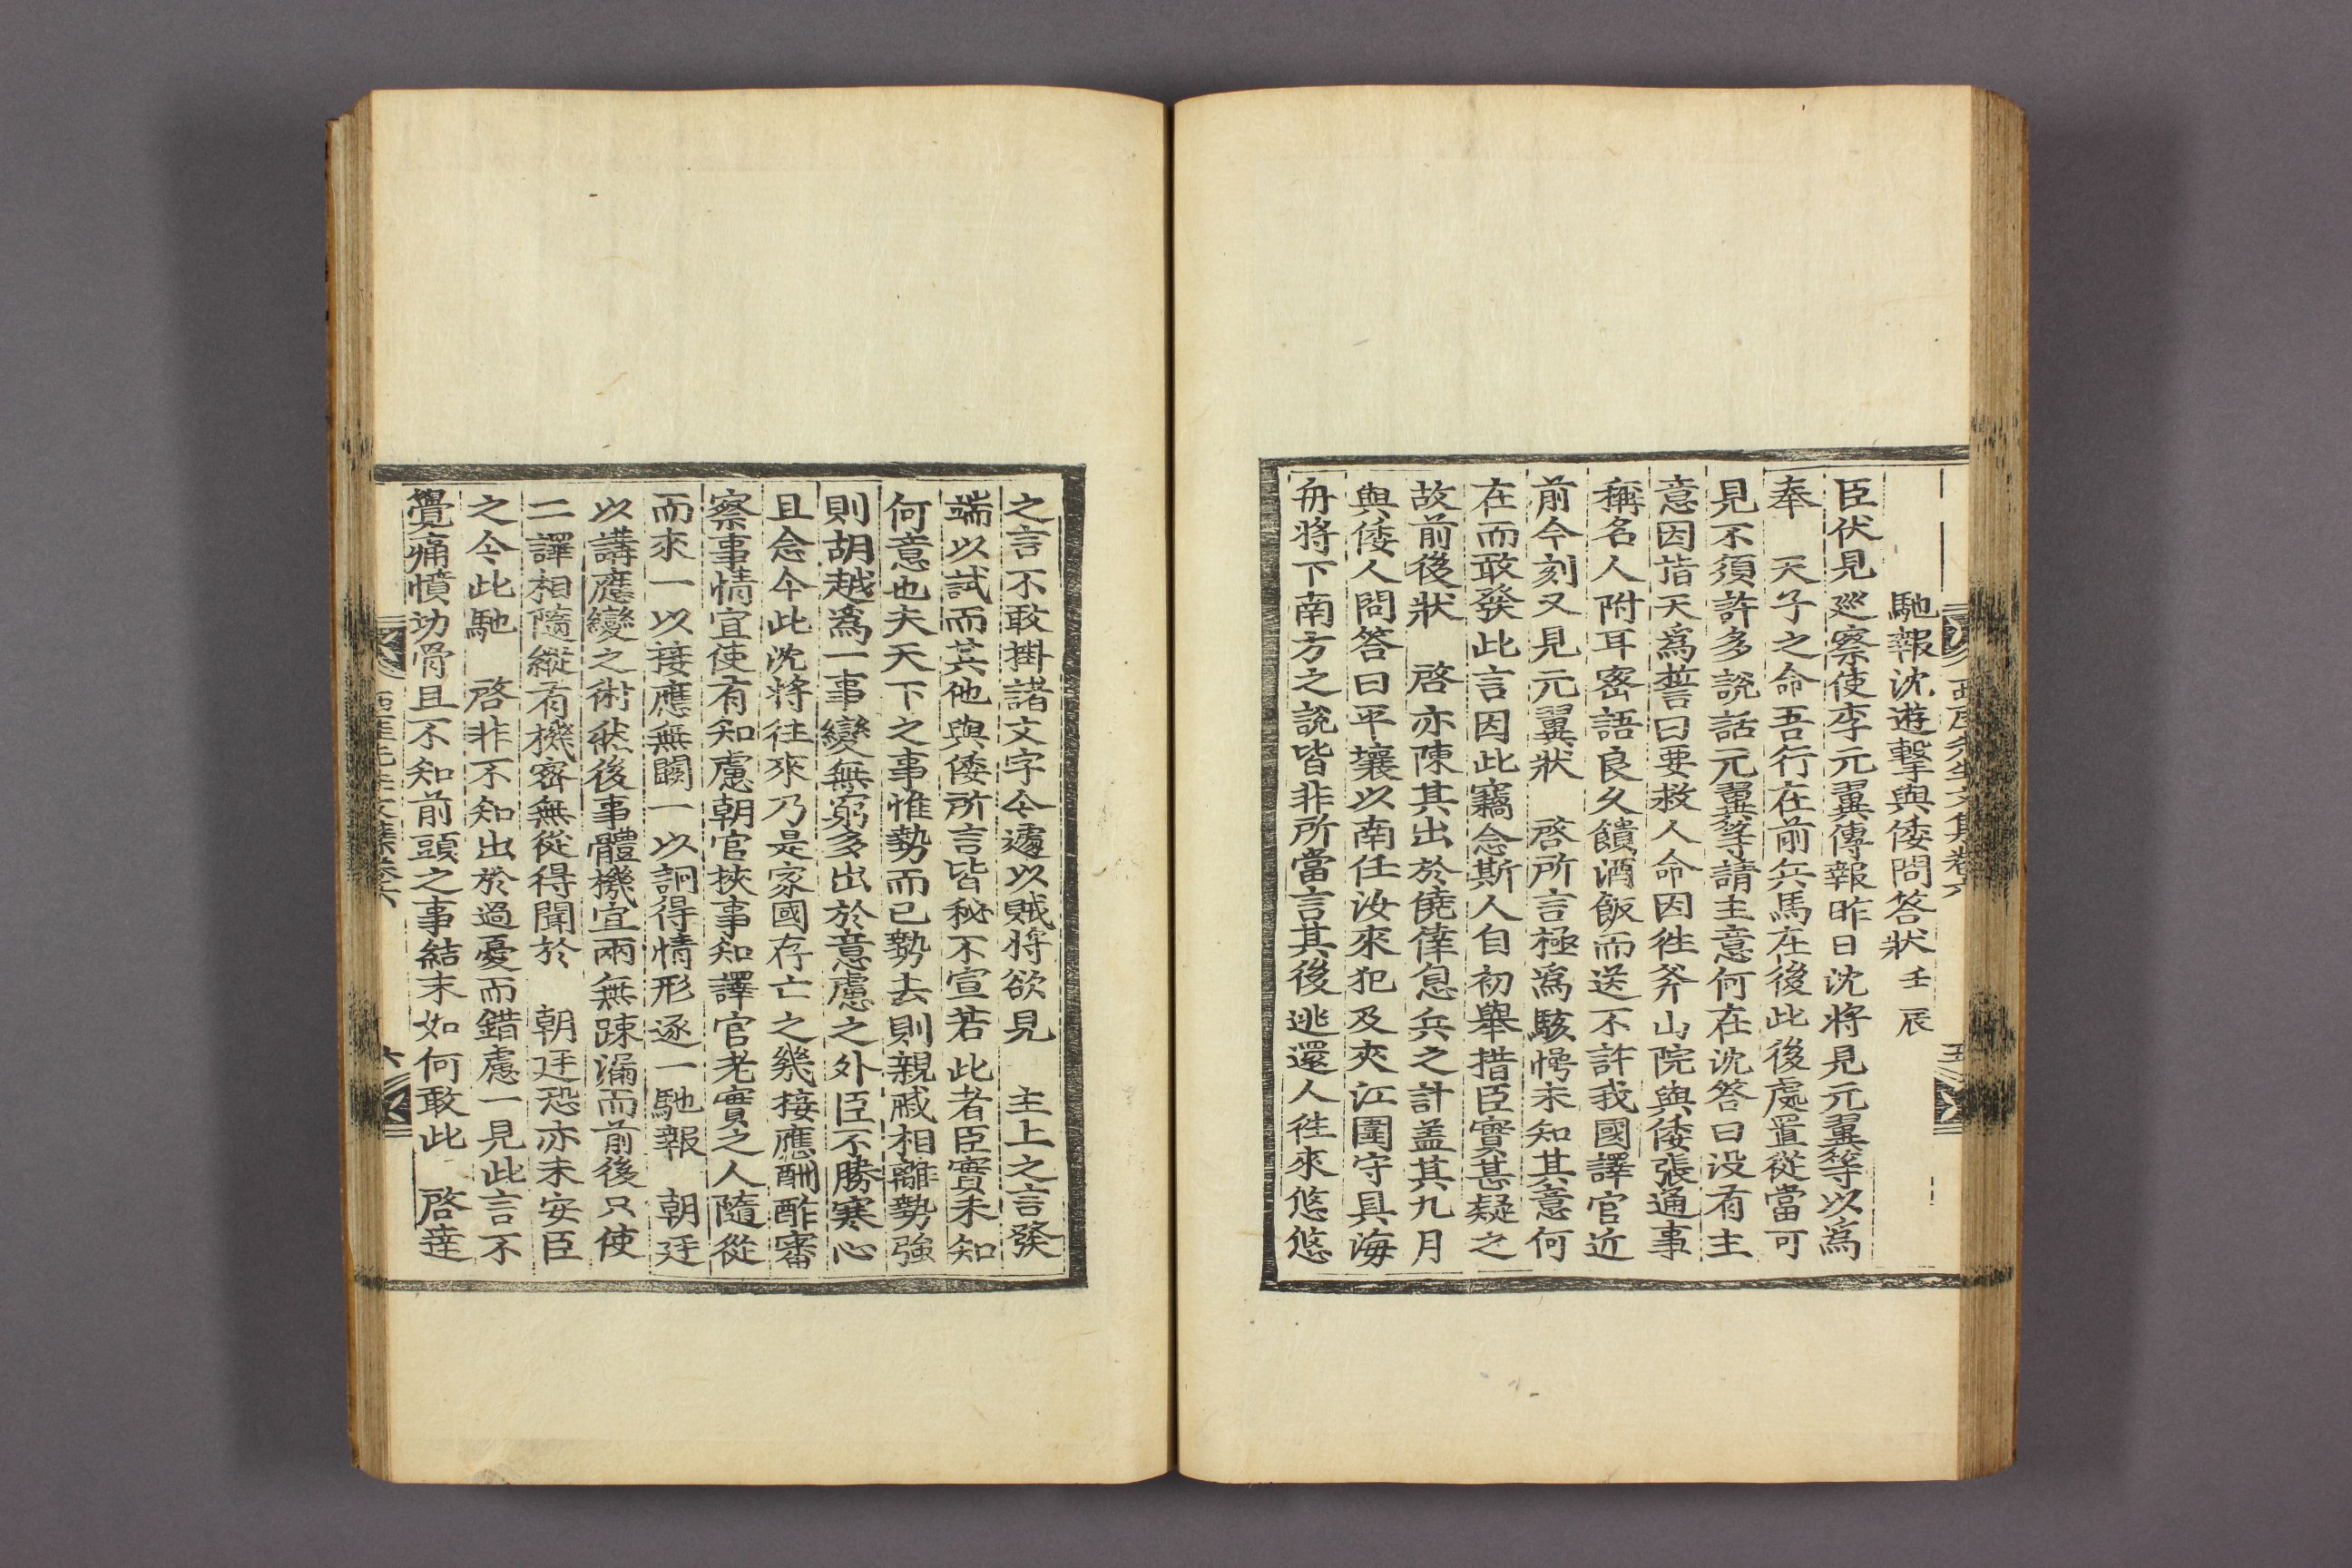 西厓先生文集卷六 五
馳報沈遊擊與倭問答狀 壬辰
臣伏見巡察使李元翼傳報昨日沈將見元翼等以爲
奉 天子之命吾行在前兵馬在後此後處置從當可
見不須許多說話元翼等請主意何在沈答曰没有主
意因指天爲誓曰要救人命因徃斧山院與倭張通事
稱名人附耳密語良久饋酒飯而送不許我國譯官近
前今刻又見元翼狀 啓所言極爲駭愕未知其意何
在而敢發此言因此竊念斯人自初舉措臣實甚疑之
故前後狀 啓亦陳其出於僥倖息兵之計盖其九月
與倭人問答曰平壤以南任汝來犯及夾江圍守具海
舟將下南方之說皆非所當言其後逃還人徃來悠悠
之言不敢掛諸文字今遽以賊將欲見 主上之言發
端以試而其他與倭所言皆秘不宣若此者臣實未知
何意也夫天下之事惟勢而已勢去則親戚相離勢強
則胡越爲一事變無窮多出於意慮之外臣不勝寒心
且念今此沈將徃來乃是家國存亡之幾接應酬酢審
察事情宜使有知慮朝官挾事知譯官老實之人隨從
而來一以接應無闕一以詗得情形逐一馳報 朝廷
以講應變之術然後事體機宜兩無踈漏而前後只使
二譯相隨縱有機密無從得聞於 朝廷恐亦未安臣
之今此馳 啓非不知出於過憂而錯慮一見此言不
覺痛憤切骨且不知前頭之事結末如何敢此 啓達
西厓先生文集卷六 六